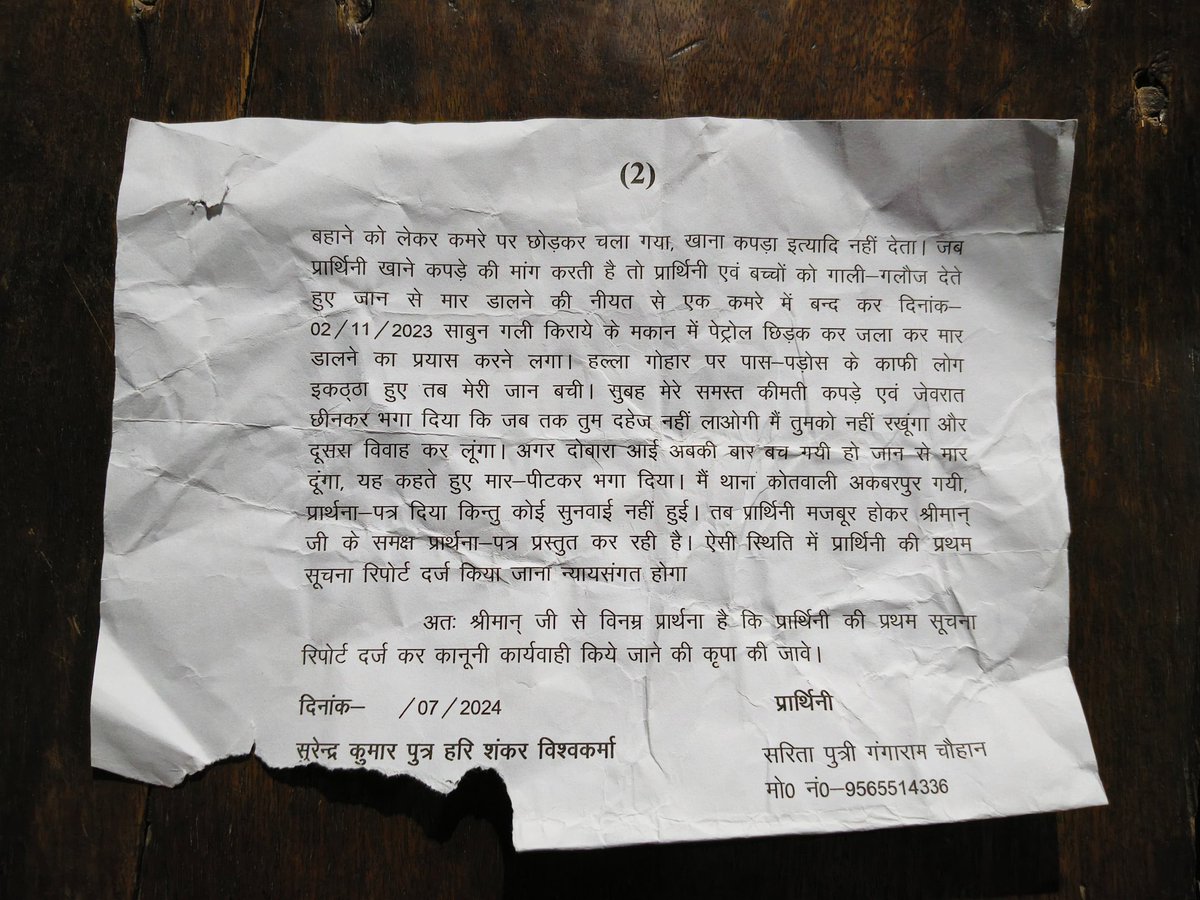 (2)
बहाने को लेकर कमरे पर छोड़कर चला गया, खाना कपड़ा इत्यादि नहीं देता। जब
प्रार्थिनी खाने कपड़े की मांग करती है तो प्रार्थिनी एवं बच्चों को गाली–गलौज देते
हुए जान से मार डालने की नीयत से एक कमरे में बन्द कर दिनांक–
02/11/2023 साबुन गली किराये के मकान में पेट्रोल छिड़क कर जला कर मार
डालने का प्रयास करने लगा। हल्ला गोहार पर पास–पड़ोस के काफी लोग
इकठ्ठा हुए तब मेरी जान बची। सुबह मेरे समस्त कीमती कपड़े एवं जेवरात
छीनकर भगा दिया कि जब तक तुम दहेज नहीं लाओगी मैं तुमको नहीं रखूंगा और
दूसरा विवाह कर लूंगा। अगर दोबारा आई अबकी बार बच गयी हो जान से मार
दूंगा, यह कहते हुए मार–पीटकर भगा दिया। मैं थाना कोतवाली अकबरपुर गयी,
प्रार्थना–पत्र दिया किन्तु कोई सुनवाई नहीं हुई। तब प्रार्थिनी मजबूर होकर श्रीमान्
जी के समक्ष प्रार्थना–पत्र प्रस्तुत कर रही है। ऐसी स्थिति में प्रार्थिनी की प्रथम
सूचना रिपोर्ट दर्ज किया जाना न्यायसंगत होगा
अतः श्रीमान् जी से विनम्र प्रार्थना है कि प्रार्थिनी की प्रथम सूचना
रिपोर्ट दर्ज कर कानूनी कार्यवाही किये जाने की कृपा की जावे।
दिनांक– /07/2024 प्रार्थिनी
सुरेन्द्र कुमार पुत्र हरि शंकर विश्वकर्मा सरिता पुत्री गंगाराम चौहान
मो0 नं0–9565514336